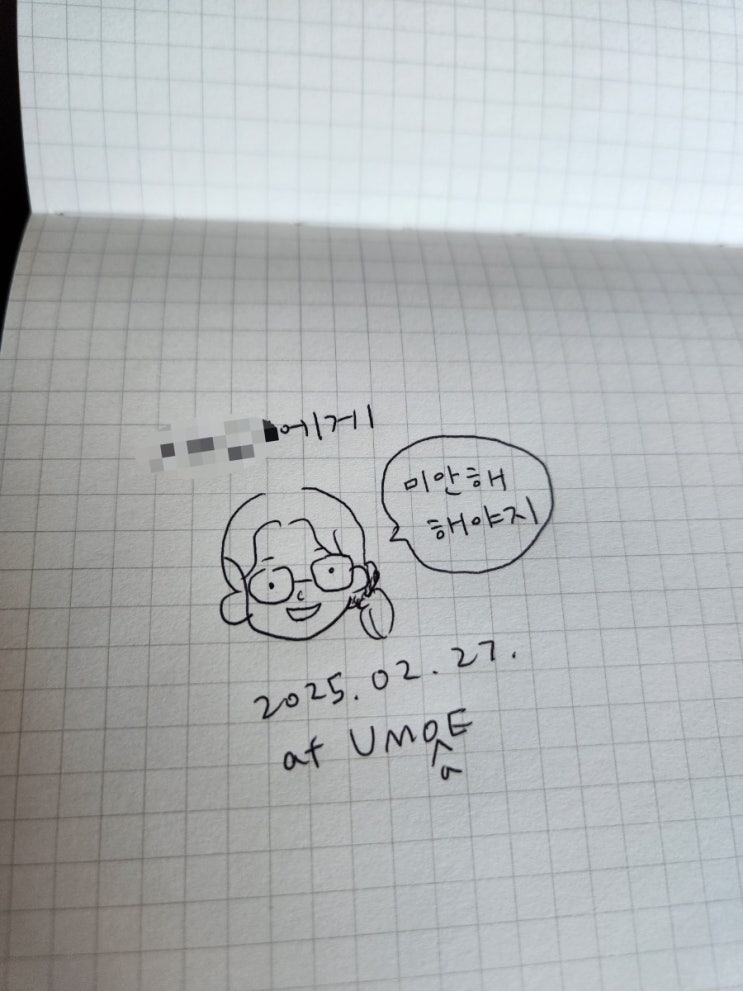 에게
미안해
해야지
2025.02.27.
at UMOE
a